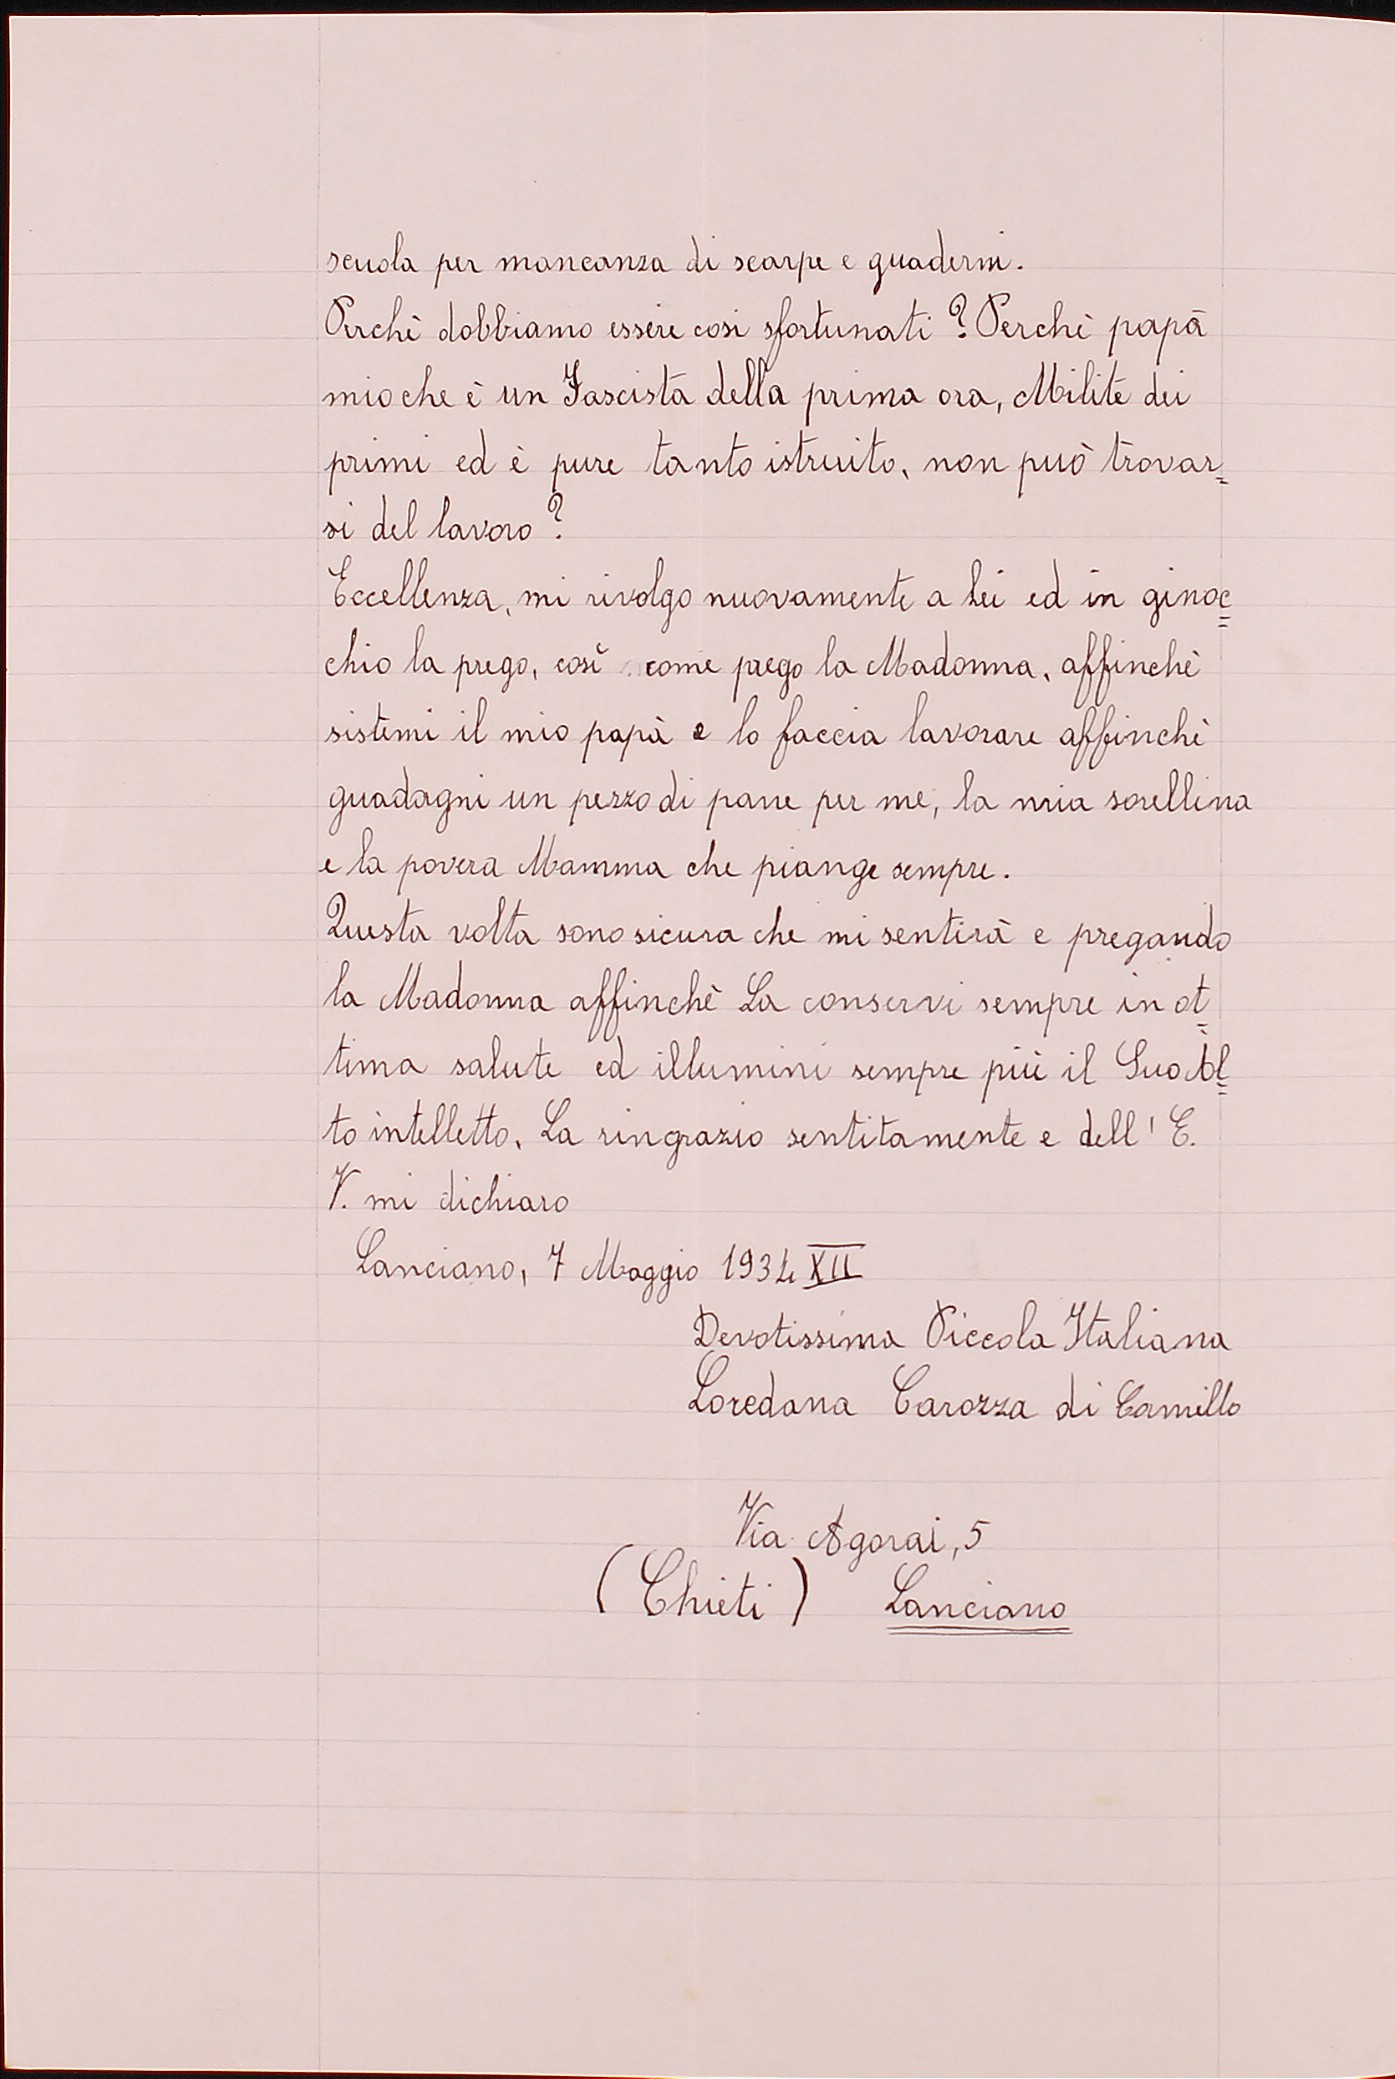 scuola per mancanza di scarpe e quaderni.
Perchè dobbiamo essere cosi sfortunati? Perchè papà
mio che è un Fascista della prima ora, Milite dei
primi ed è pure tanto istruito, non può trovar=
si del lavoro?
Eccellenza, mi rivolgo nuovamente a Lei ed in ginoc=
chio la prego, così come prego la Madonna, affinchè
sistemi il mio papà e lo faccia lavorare affinchè
guadagni un pezzo di pane per me, la mia sorellina
e la povera Mamma che piange sempre.
Questa volta sono sicura che mi sentirà e pregando
la Madonna affinchè La conservi sempre in ot=
tima salute ed illumini sempre più il Suo Al=
to intelletto, La ringrazio sentitamente e dell' E.
V. mi dichiaro
Lanciano, 7 Maggio 1934 XII
Devotissima Piccola Italiana
Loredana Carozza di Camillo
Via Agorai, 5
(Chieti) Lanciano